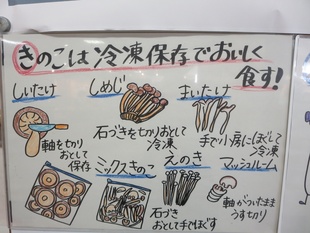 きのこは冷凍保存でおいしく
食す!
しいたけ
しめじ
まいたけ
軸を切り
おとして
保存
石づきを切りおとして
冷凍
手で小房にほぐして
冷凍
ミックスきのこ
えのき
マッシュルーム
石づき
おとして手でほぐす
軸がついたまま
うす切り